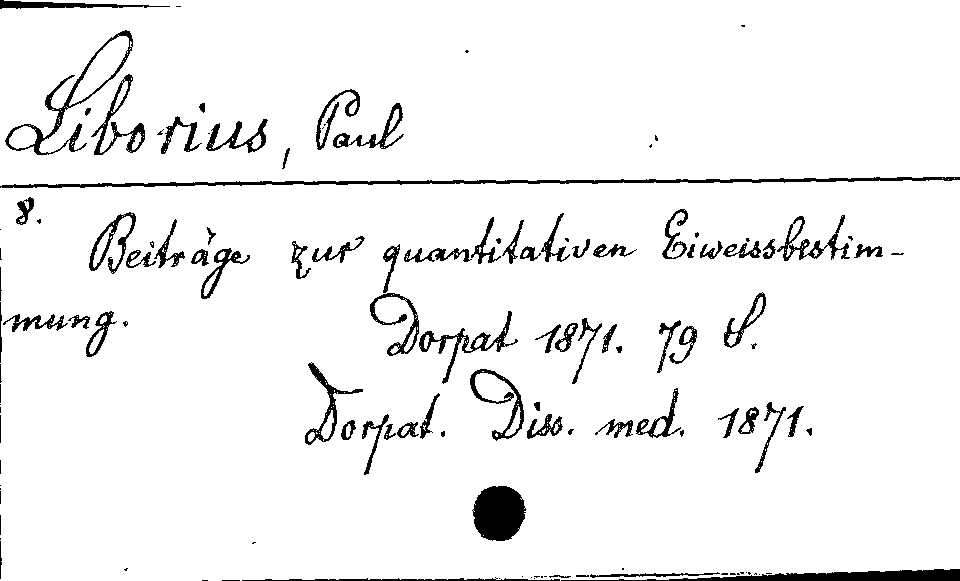 Liborius, Paul
8.
Beiträge zur quantitativen Eiweissbestim-
mung. Dorpat 1871. 79 S.
Dorpat. Diss. med. 1871.